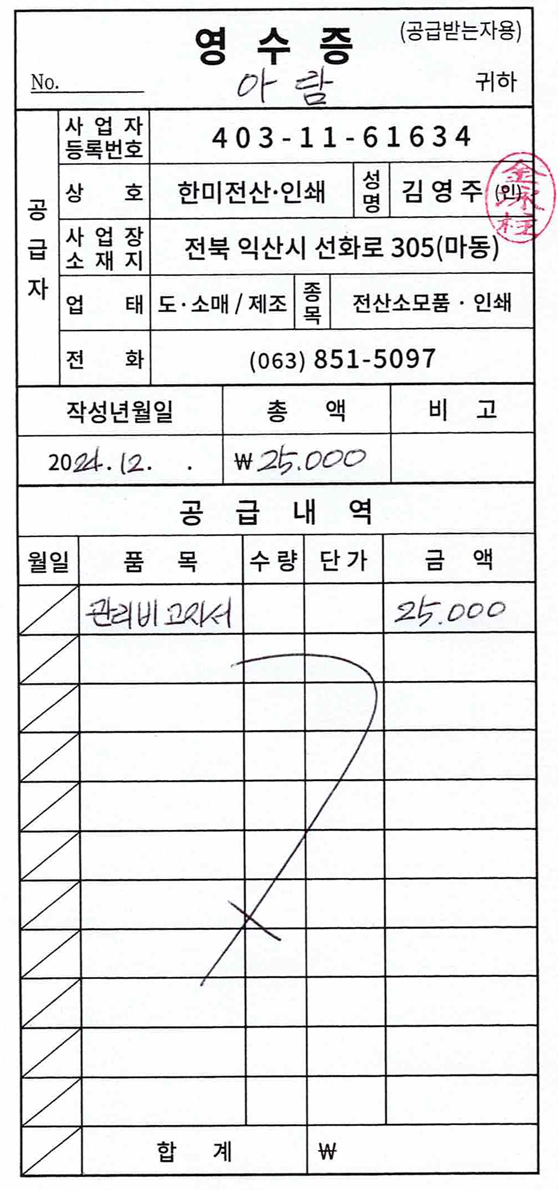 영 수 증 (공급받는자용)
No. 아 람 귀하
공급자
사 업 자 등록번호 403-11-61634
상 호 한미전산·인쇄 성명 김 영 주 (인)
사 업 장 소 재 지 전북 익산시 선화로 305(마동)
업 태 도·소매 / 제조 종목 전산소모품 · 인쇄
전 화 (063) 851-5097
작성년월일 총 액 비 고
2024.12. . ₩25.000
공 급 내 역
월일 품 목 수량 단가 금 액
관리비 고지서 25.000
합 계 ₩